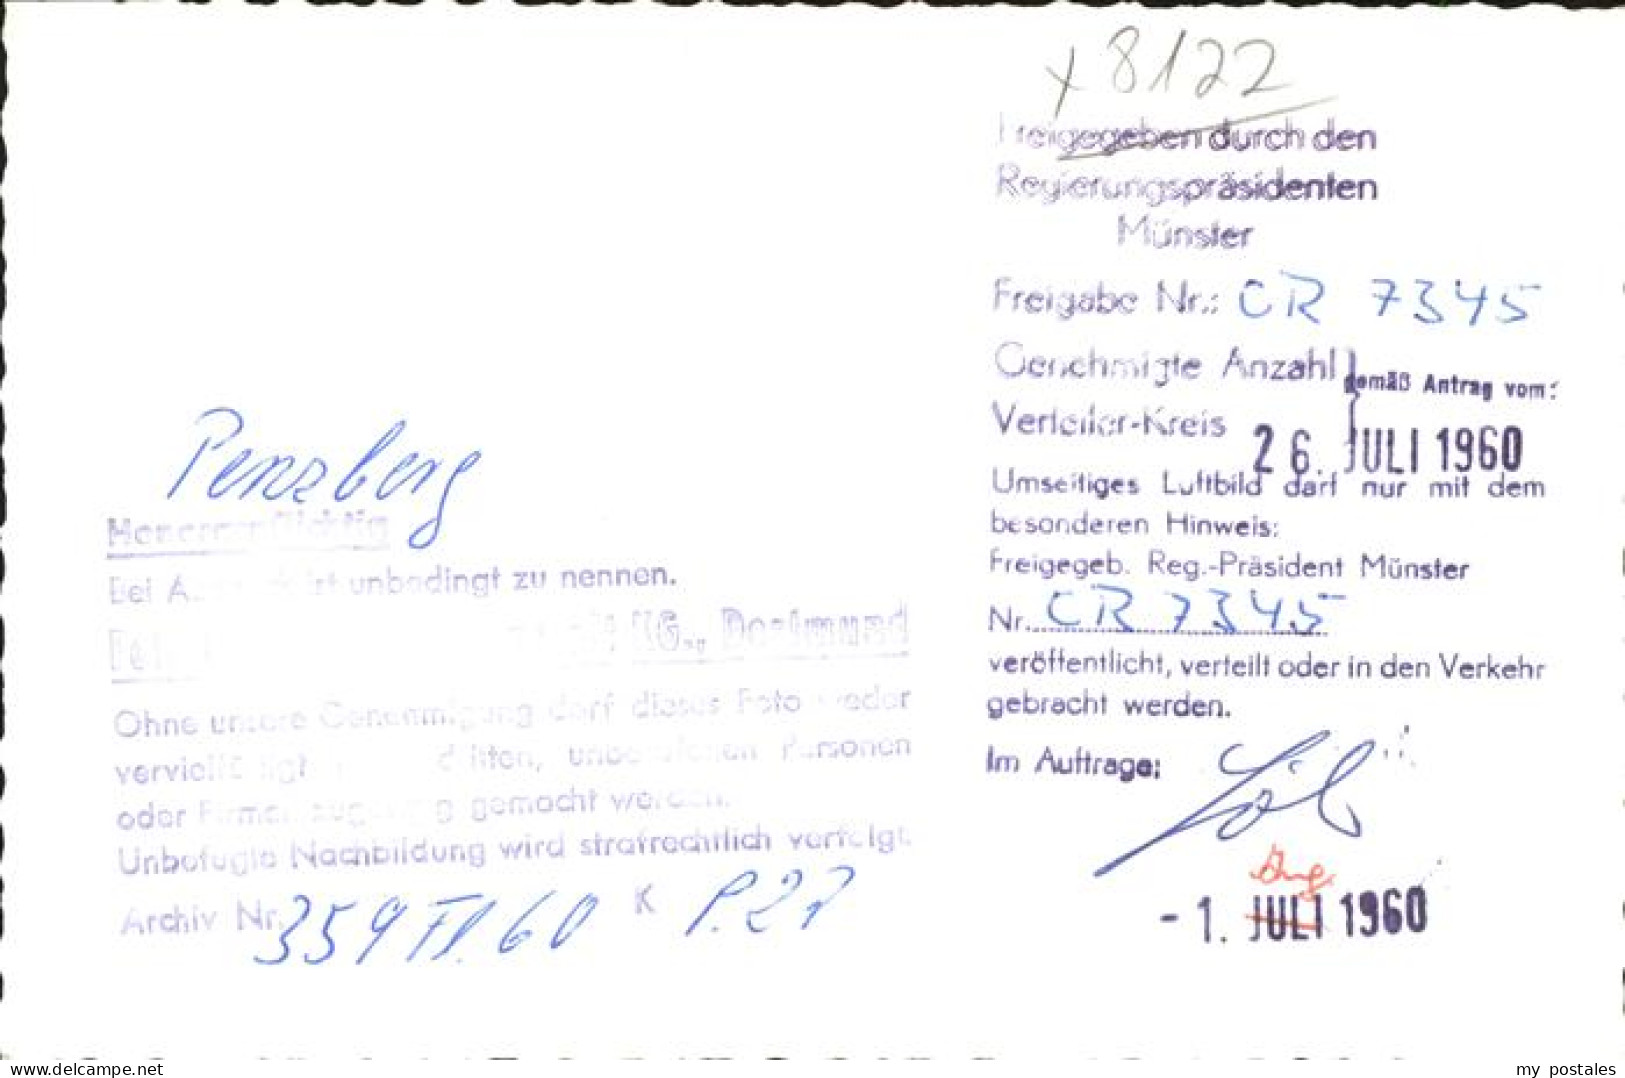 x 8122
Freigegeben durch den
Regierungspräsidenten
Münster
Freigabe Nr.: CR 7345
Genehmigte Anzahl
gemäß Antrag vom:
Verteiler-Kreis
26. JULI 1960
Umseitiges Luftbild darf nur mit dem
besonderen Hinweis:
Freigegeb. Reg.-Präsident Münster
Nr. CR 7345
veröffentlicht, verteilt oder in den Verkehr
gebracht werden.
Im Auftrage:
Aug.
- 1. JULI 1960
Penzberg
Honorarpflichtig
Bei unbedingt zu nennen.
KG., Dortmund
Ohne unsere Genehmigung darf dieses Foto weder
dritten, Personen
oder Firmen gemacht werden.
Unbefugte Nachbildung wird strafrechtlich verfolgt.
Archiv Nr. 359 Fl. 60 K P. 27
delcampe.net
my_postales